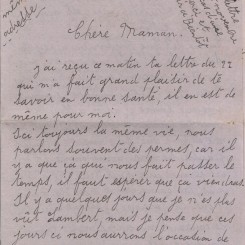 même
adresse
Chère Maman.
j'ai reçu ce matin ta lettre du 22
qui m'a fait grand plaisir de te
savoir en bonne santé, il en est de
même pour moi.
Ici toujours la même vie, nous
parlons souvent des permes, car il
y a que ça qui nous fait passer le
temps, il faut espérer que ça viendra
Il y a quelques jours que je n'ai plus
vu Lambert, mais je pense que ces
jours ci nous aurons l'occasion de